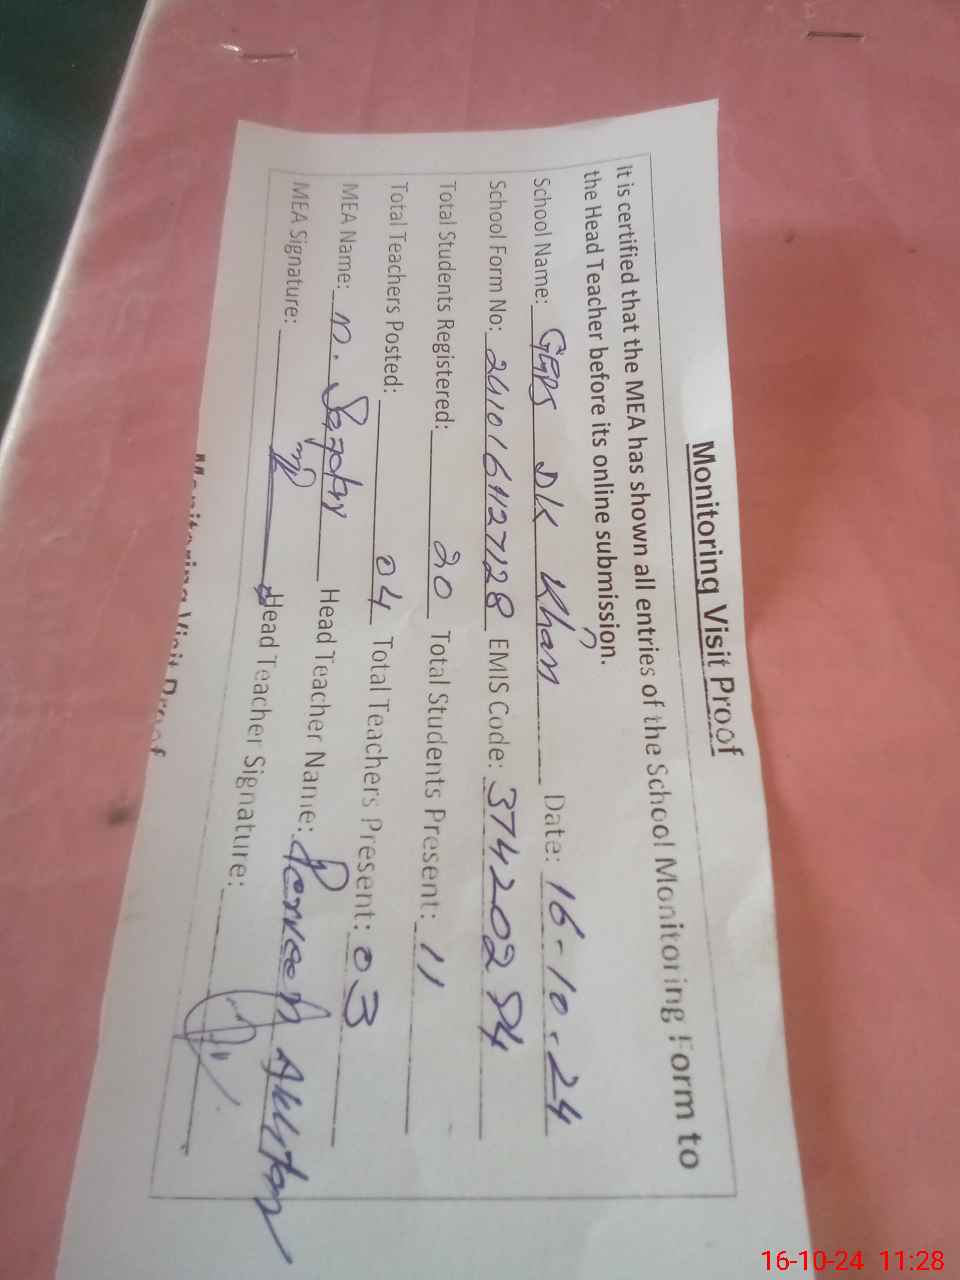 Monitoring Visit Proof
It is certified that the MEA has shown all entries of the School Monitoring Form to
the Head Teacher before its online submission.
School Name: GGPS DK Khan Date: 16-10-24
School Form No: 24101641127128 EMIS Code: 37420294
Total Students Registered: 20 Total Students Present: 11
Total Teachers Posted: 04 Total Teachers Present: 03
MEA Name: M. Head Teacher Name: Perveen Akhtar
MEA Signature: Head Teacher Signature:
Monitoring Visit Proof
16-10-24 11:28